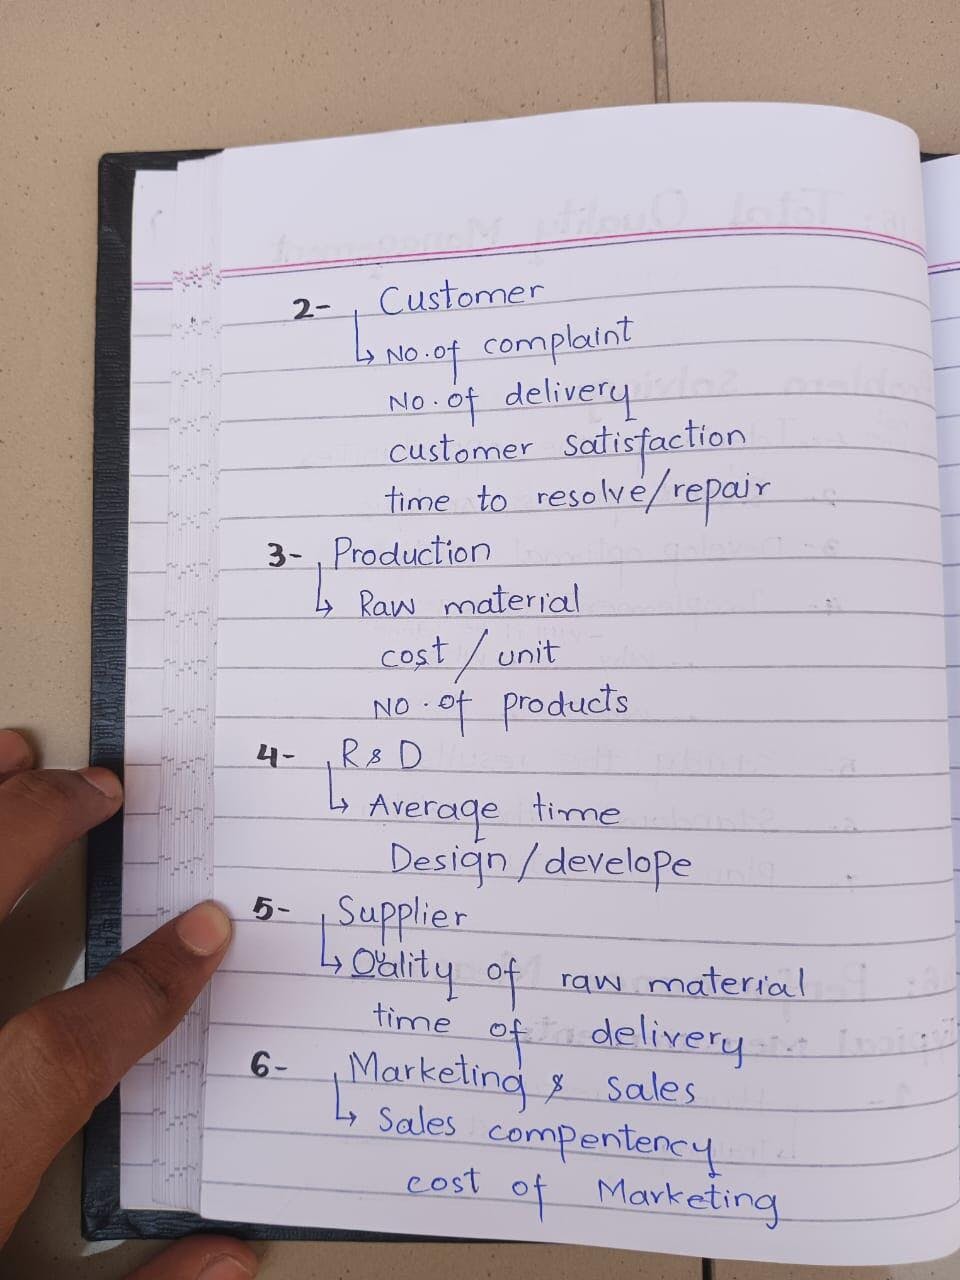 2- Customer
↳ No. of complaint
No. of delivery
customer satisfaction
time to resolve/repair
3- Production
↳ Raw material
cost / unit
No. of products
4- R & D
↳ Average time
Design / develope
5- Supplier
↳ Quality of raw material
time of delivery
6- Marketing & sales
↳ Sales compentency
cost of Marketing